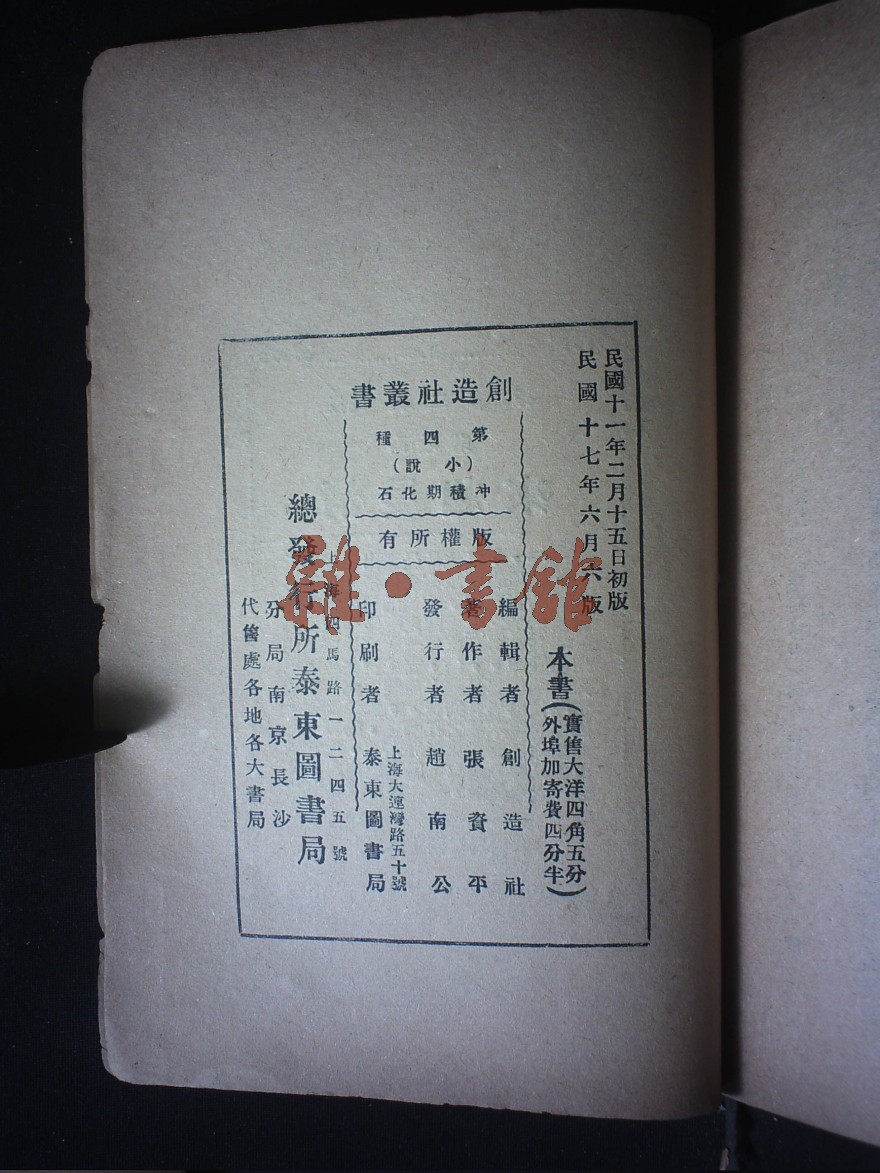 民國十一年二月十五日初版
民國十七年六月六版
本書(實售大洋四角五分
外埠加寄費四分半)
創造社叢書
第四種
(小說)
冲積期化石
版權所有
編輯者創造社
著作者張資平
發行者趙南公
上海大連灣路五十號
印刷者泰東圖書局
上海四馬路一二四五號
總發行所泰東圖書局
分局南京長沙
代售處各地各大書局
雜·書館